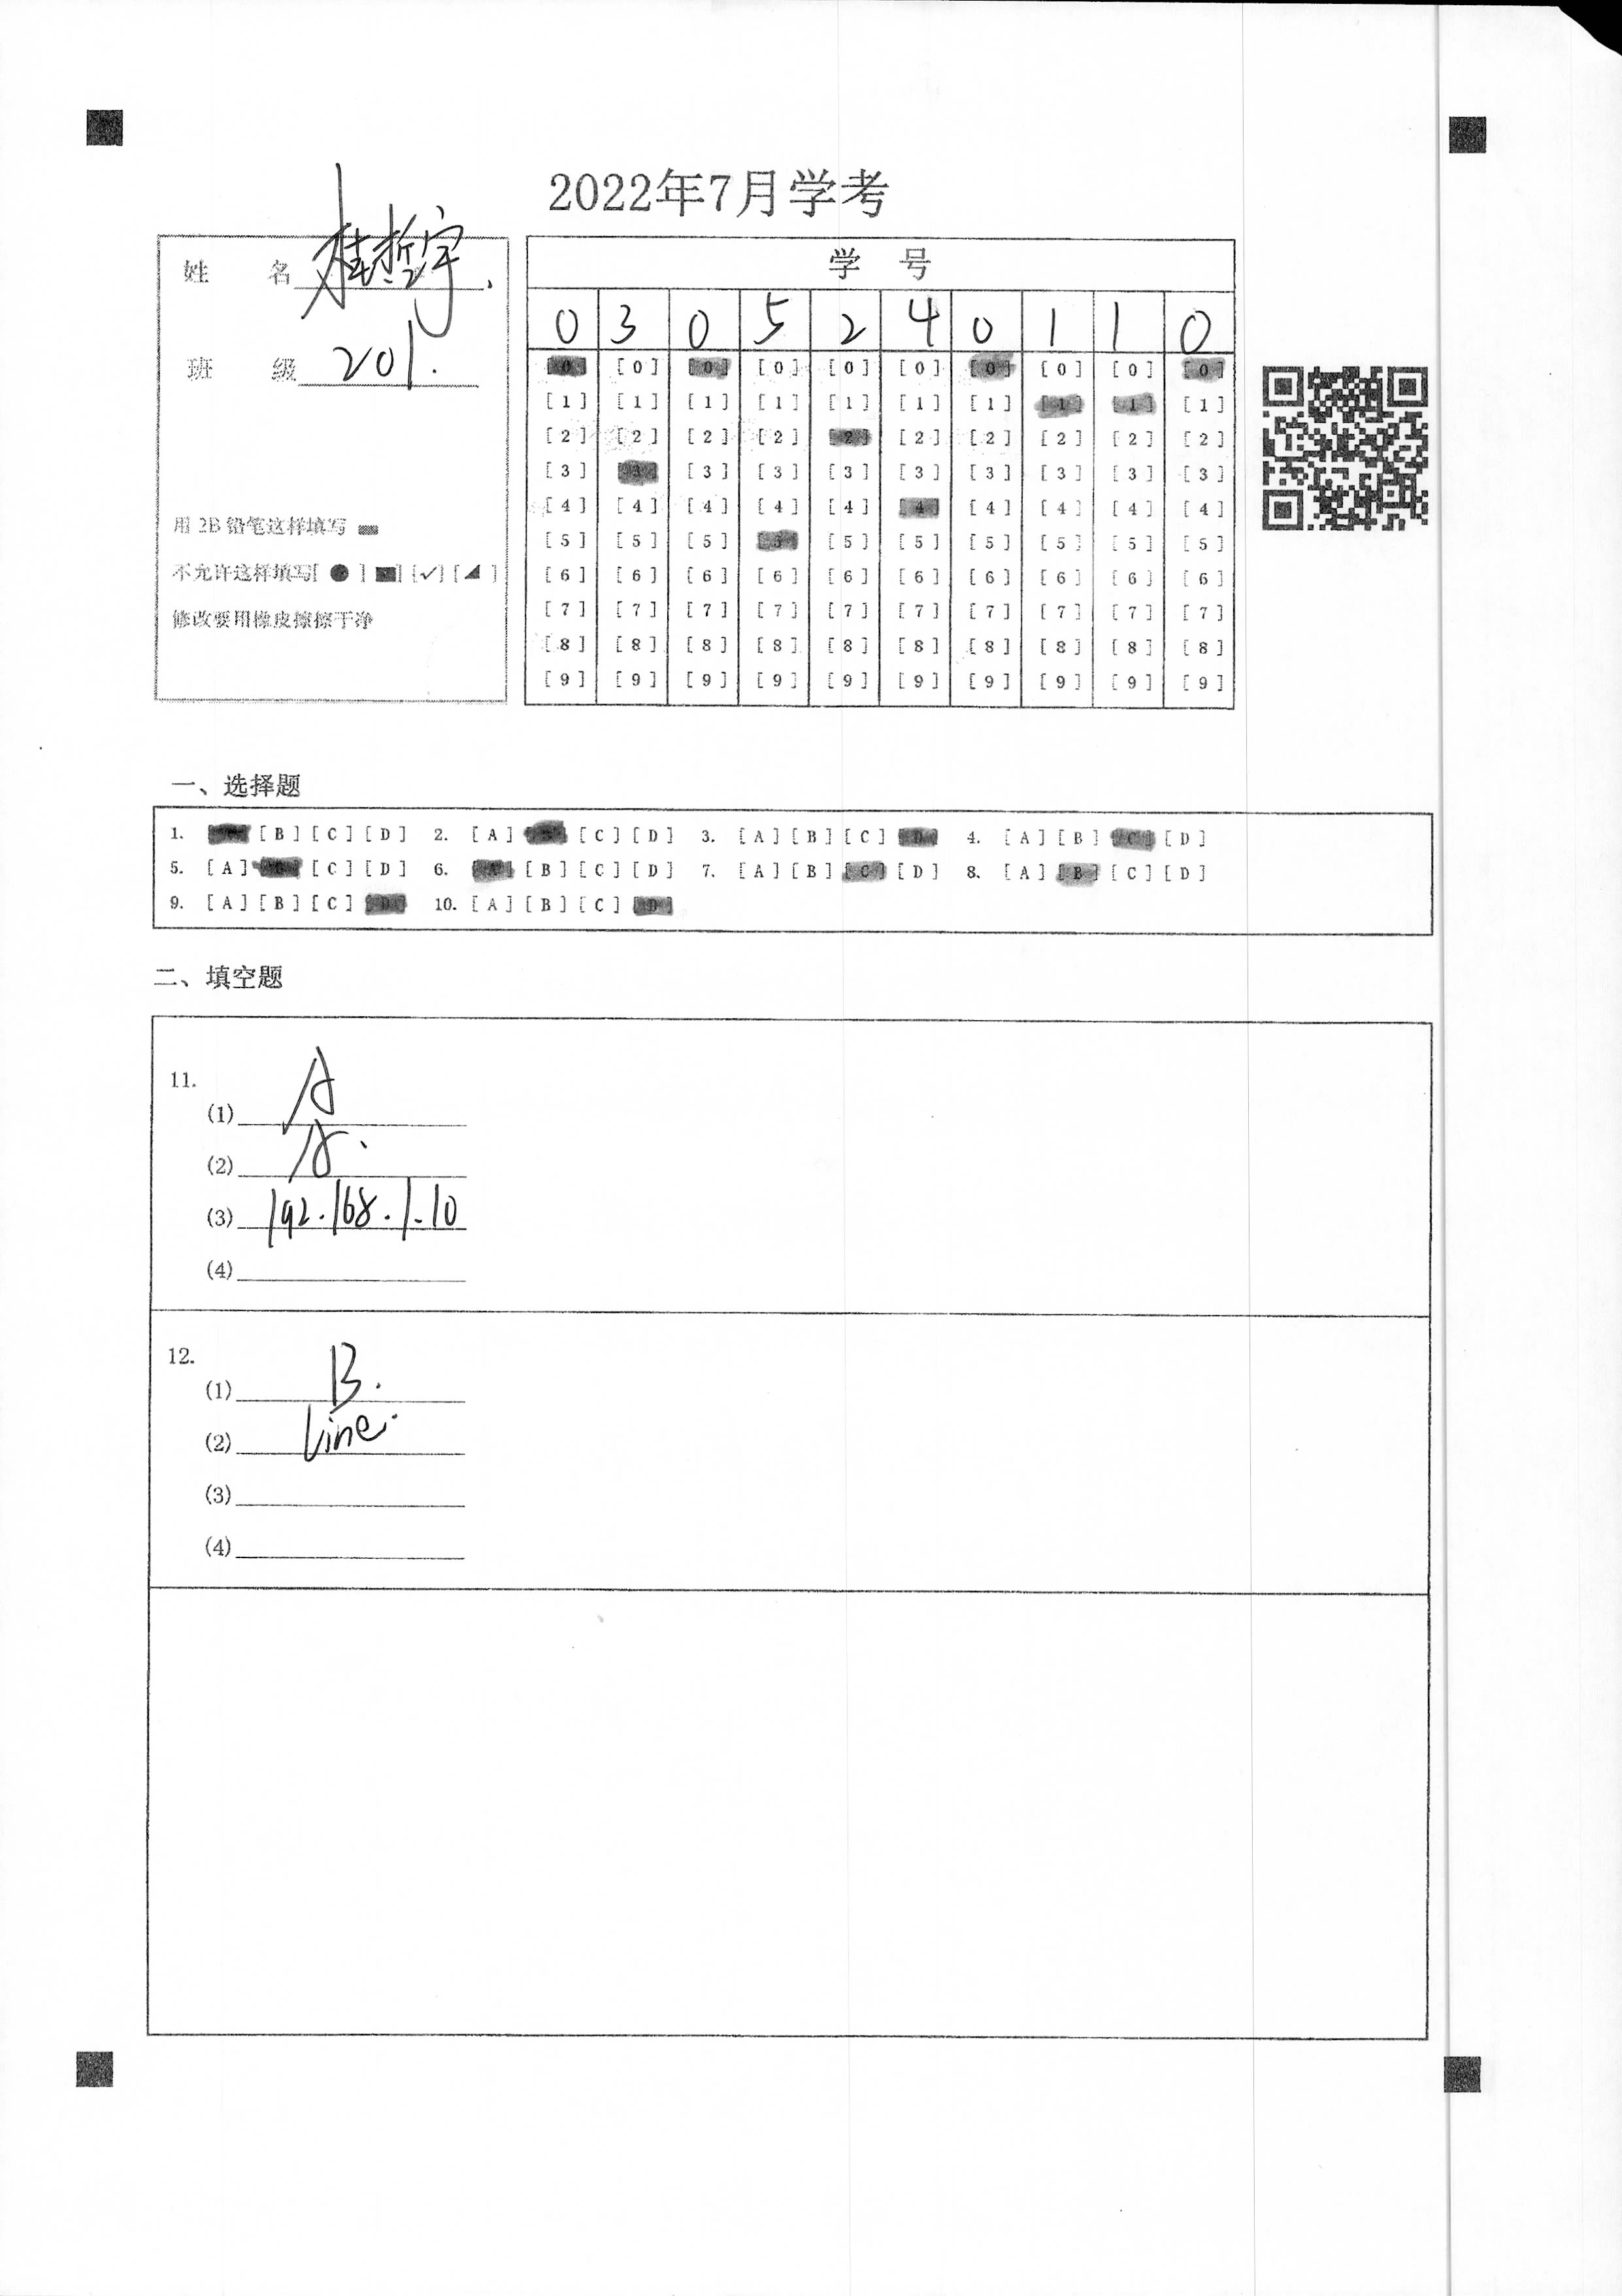 2022年7月学考
姓 名 桂哲宇.
班 级 201.
用 2B 铅笔这样填写
不允许这样填写[ ● ] [■] [✓] [◢ ]
修改要用橡皮擦擦干净
学 号
0 3 0 5 2 4 0 1 1 0
[0] [0] [0] [0] [0] [0] [0] [0] [0] [0]
[1] [1] [1] [1] [1] [1] [1] [1] [1] [1]
[2] [2] [2] [2] [2] [2] [2] [2] [2] [2]
[3] [3] [3] [3] [3] [3] [3] [3] [3] [3]
[4] [4] [4] [4] [4] [4] [4] [4] [4] [4]
[5] [5] [5] [5] [5] [5] [5] [5] [5] [5]
[6] [6] [6] [6] [6] [6] [6] [6] [6] [6]
[7] [7] [7] [7] [7] [7] [7] [7] [7] [7]
[8] [8] [8] [8] [8] [8] [8] [8] [8] [8]
[9] [9] [9] [9] [9] [9] [9] [9] [9] [9]
一、选择题
1. [A] [B] [C] [D] 2. [A] [B] [C] [D] 3. [A] [B] [C] [D] 4. [A] [B] [C] [D]
5. [A] [B] [C] [D] 6. [A] [B] [C] [D] 7. [A] [B] [C] [D] 8. [A] [B] [C] [D]
9. [A] [B] [C] [D] 10. [A] [B] [C] [D]
二、填空题
11.
(1) A
(2) A.
(3) 192.168.1.10
(4)
12.
(1) B.
(2) line.
(3)
(4)